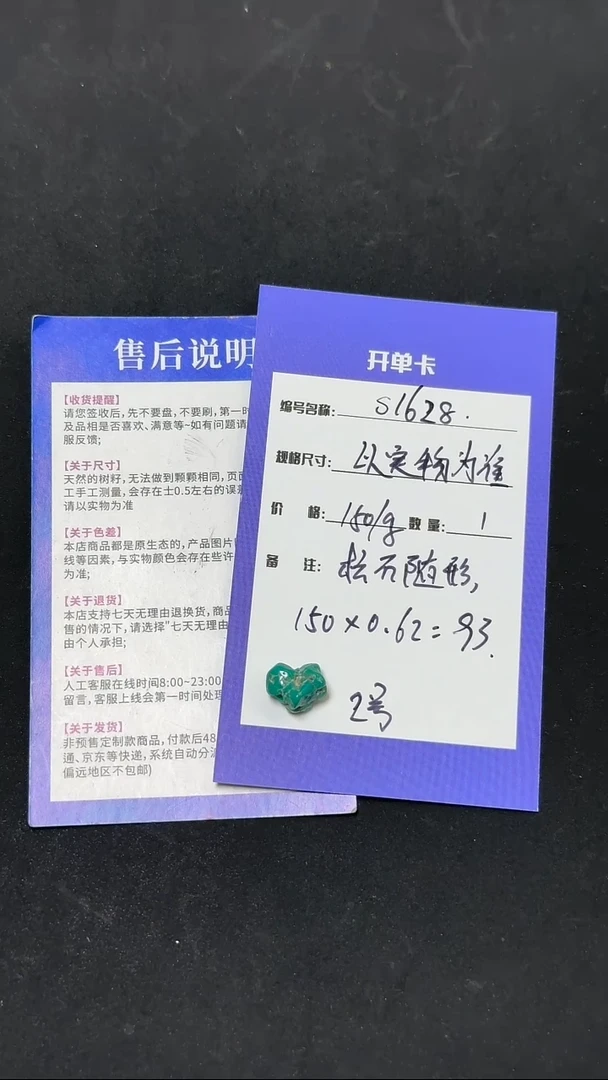 售后说明
【收货提醒】
请您签收后,先不要盘,不要刷,第一时
及品相是否喜欢、满意等~如有问题请
服反馈;
【关于尺寸】
天然的树籽,无法做到颗颗相同,页面
工手工测量,会存在士0.5左右的误差
请以实物为准
【关于色差】
本店商品都是原生态的,产品图片
线等因素,与实物颜色会存在些许
为准;
【关于退货】
本店支持七天无理由退换货,商品
售的情况下,请选择"七天无理由
由个人承担;
【关于售后】
人工客服在线时间8:00~23:00
留言,客服上线会第一时间处理
【关于发货】
非预售定制款商品,付款后48
通、京东等快递,系统自动分派
偏远地区不包邮)
开单卡
编号名称: S1628.
规格尺寸: 以实物为准
价 格: 150/g 数量: 1
备 注: 松石随形,
150×0.62=93.
2号